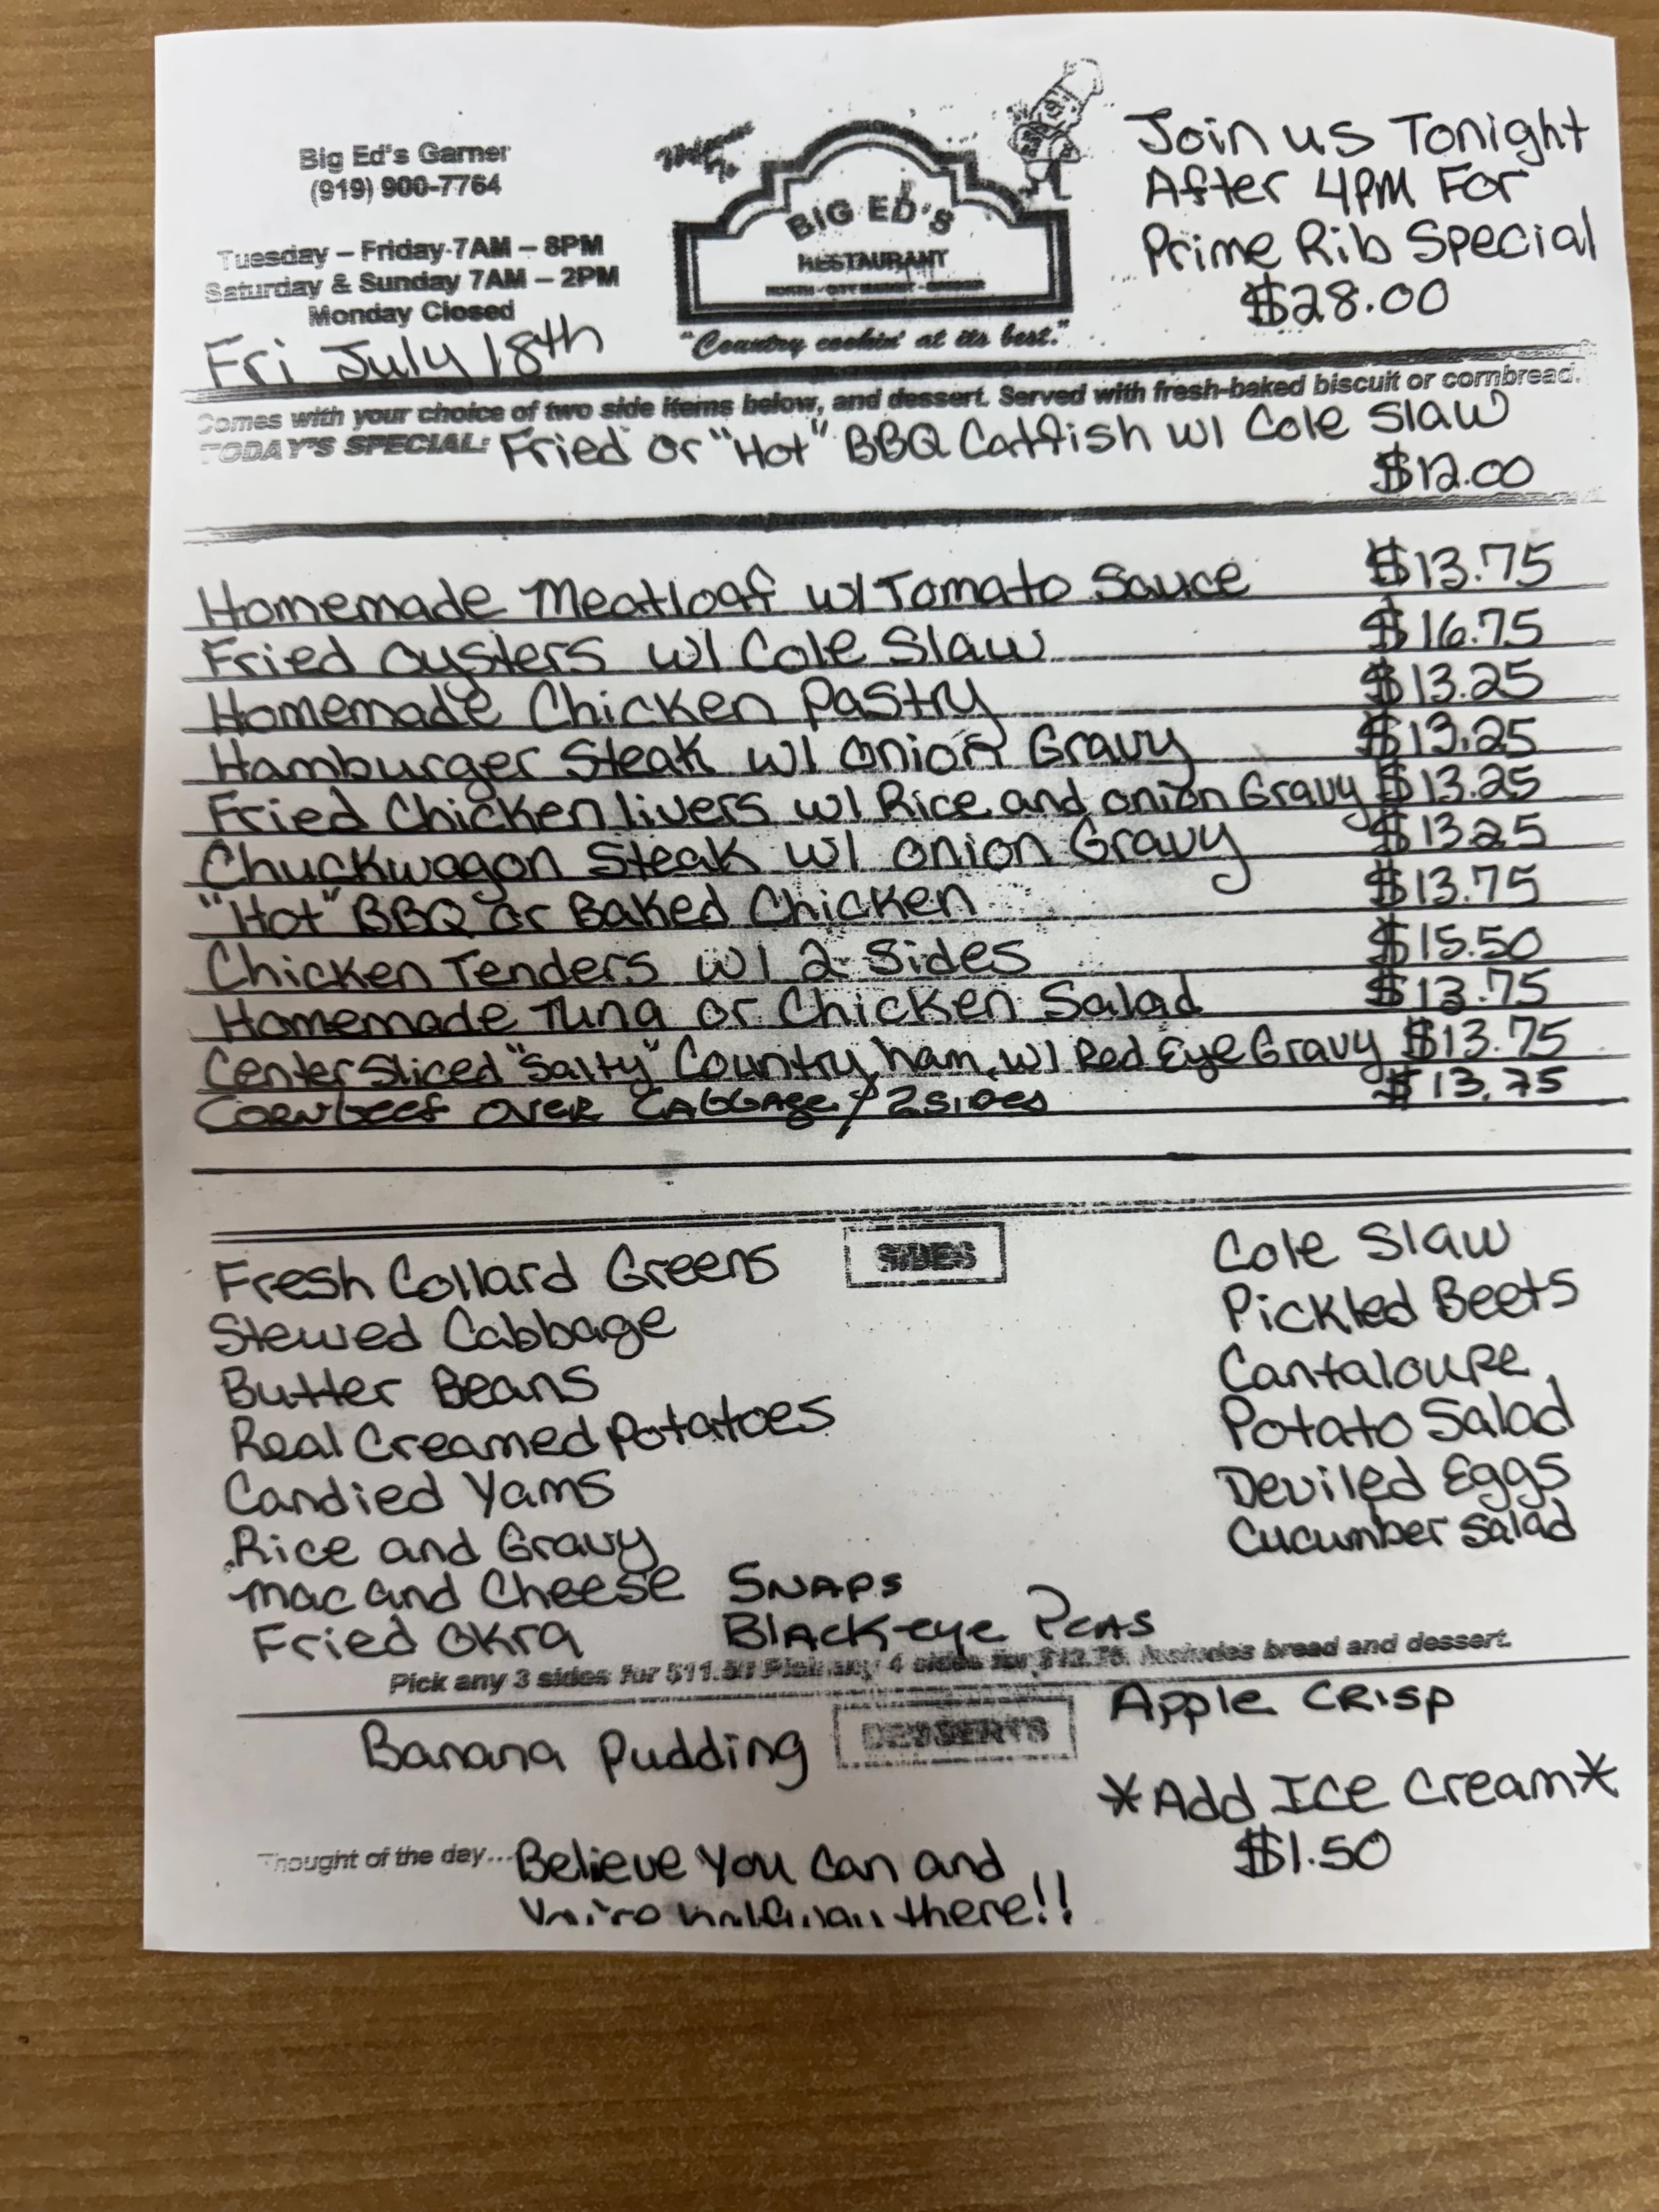 Big Ed's Garner
(919) 900-7764
Tuesday – Friday 7AM – 8PM
Saturday & Sunday 7AM – 2PM
Monday Closed
Fri July 18th
BIG ED'S
RESTAURANT
NORTH - CITY MARKET - GARNER
"Country cookin' at its best."
Join us Tonight
After 4PM For
Prime Rib Special
$28.00
Comes with your choice of two side items below, and dessert. Served with fresh-baked biscuit or cornbread.
TODAY'S SPECIAL: Fried or "Hot" BBQ Catfish w/ Cole Slaw
$12.00
Homemade Meatloaf w/ Tomato Sauce $13.75
Fried oysters w/ Cole Slaw $16.75
Homemade Chicken Pastry $13.25
Hamburger Steak w/ onion Gravy $13.25
Fried Chicken livers w/ Rice and onion Gravy $13.25
Chuckwagon Steak w/ onion Gravy $13.25
"Hot" BBQ or Baked Chicken $13.75
Chicken Tenders w/ 2 Sides $15.50
Homemade Tuna or Chicken Salad $13.75
Center Sliced "Salty" Country ham w/ Red Eye Gravy $13.75
Cornbeef over Cabbage / 2 Sides $13.75
SIDES
Fresh Collard Greens
Stewed Cabbage
Butter Beans
Real Creamed Potatoes
Candied Yams
Rice and Gravy
Mac and Cheese
Fried Okra
Snaps
Black-eye Peas
Cole Slaw
Pickled Beets
Cantaloupe
Potato Salad
Deviled Eggs
Cucumber Salad
Pick any 3 sides for $11.50 Pick any 4 sides for $12.75. Includes bread and dessert.
DESSERTS
Banana Pudding
Apple Crisp
*Add Ice Cream*
$1.50
Thought of the day... Believe You Can and
You're halfway there!!